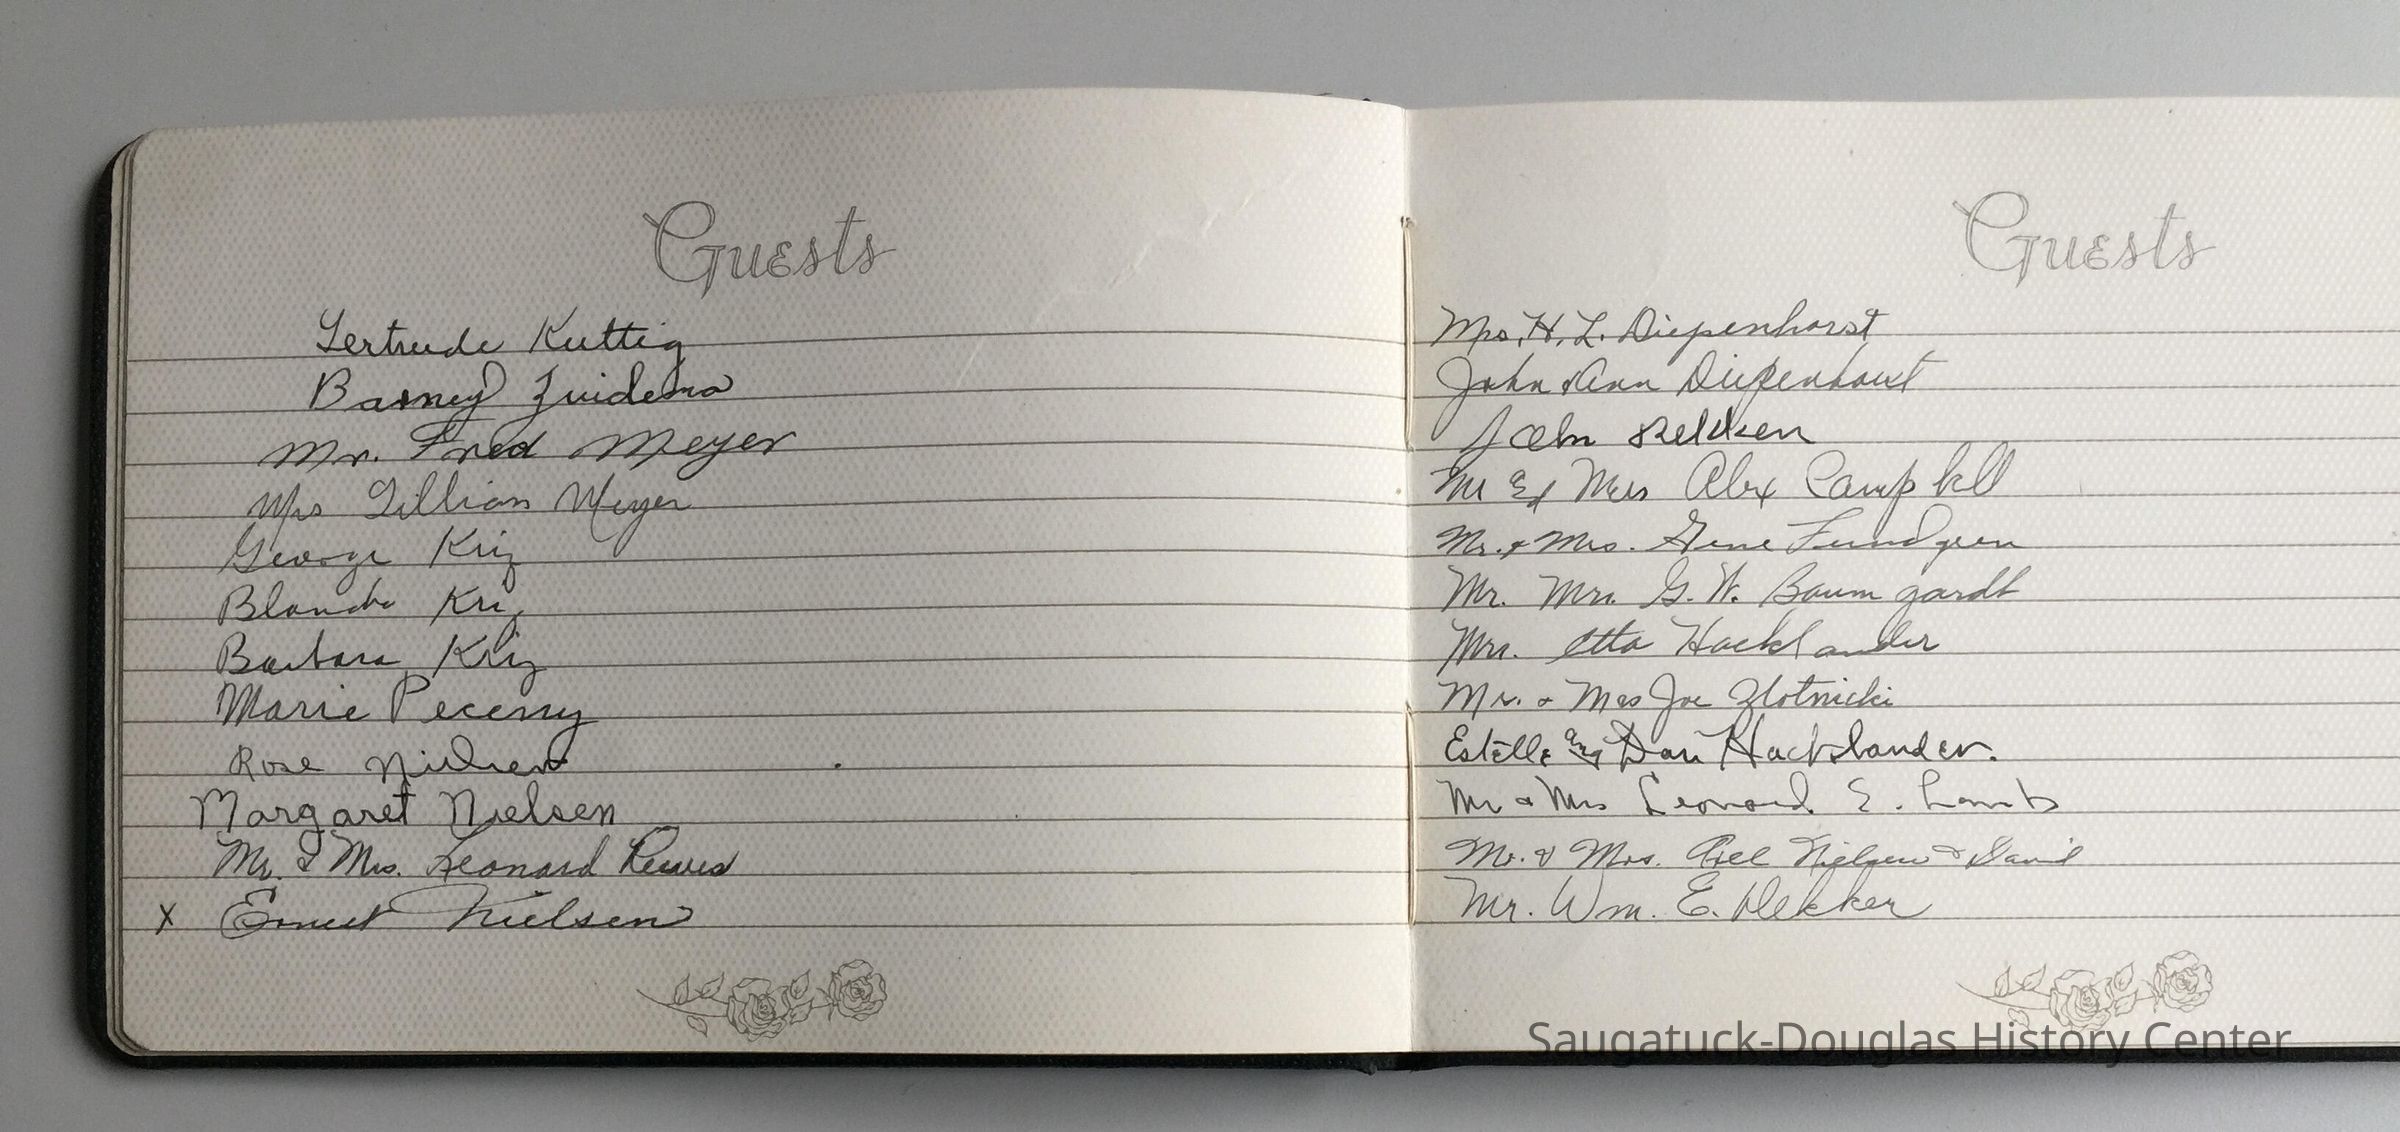 Guests
Gertrude Kuttig
Barney Zuidema
Mr. Fred Meyer
Mrs Lillian Meyer
George Kriz
Blanche Kriz
Barbara Kriz
Marie Peceny
Rose Nielsen
Margaret Nielsen
Mr. & Mrs. Leonard Reeves
x Ernest Nielsen
Guests
Mrs. H. L. Diepenhorst
John & Ann Diepenhorst
John
Mr & Mrs Alex Campbell
Mr. & Mrs. Gene Lundgren
Mr. Mrs. G. W. Baumgardt
Mrs. Etta Hacklander
Mr. & Mrs Joe Zlotnicki
Estelle and Dan Hacklander.
Mr & Mrs Leonard E. Lamb
Mr. & Mrs. Axel Nielsen & David
Mr. Wm. E. Dekker
Saugatuck-Douglas History Center